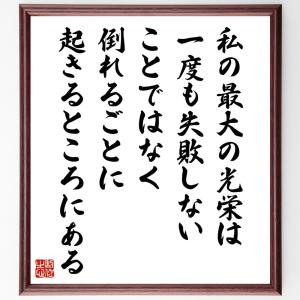 私の最大の光栄は
一度も失敗しない
ことではなく
倒れるごとに
起きるところにある